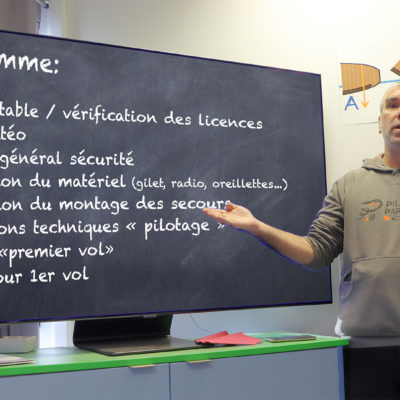 mme:
table / vérification des licences
téo
général sécurité
on du matériel (gilet, radio, oreillettes...)
on du montage des secours
ons techniques « pilotage »
«premier vol»
our 1er vol
A